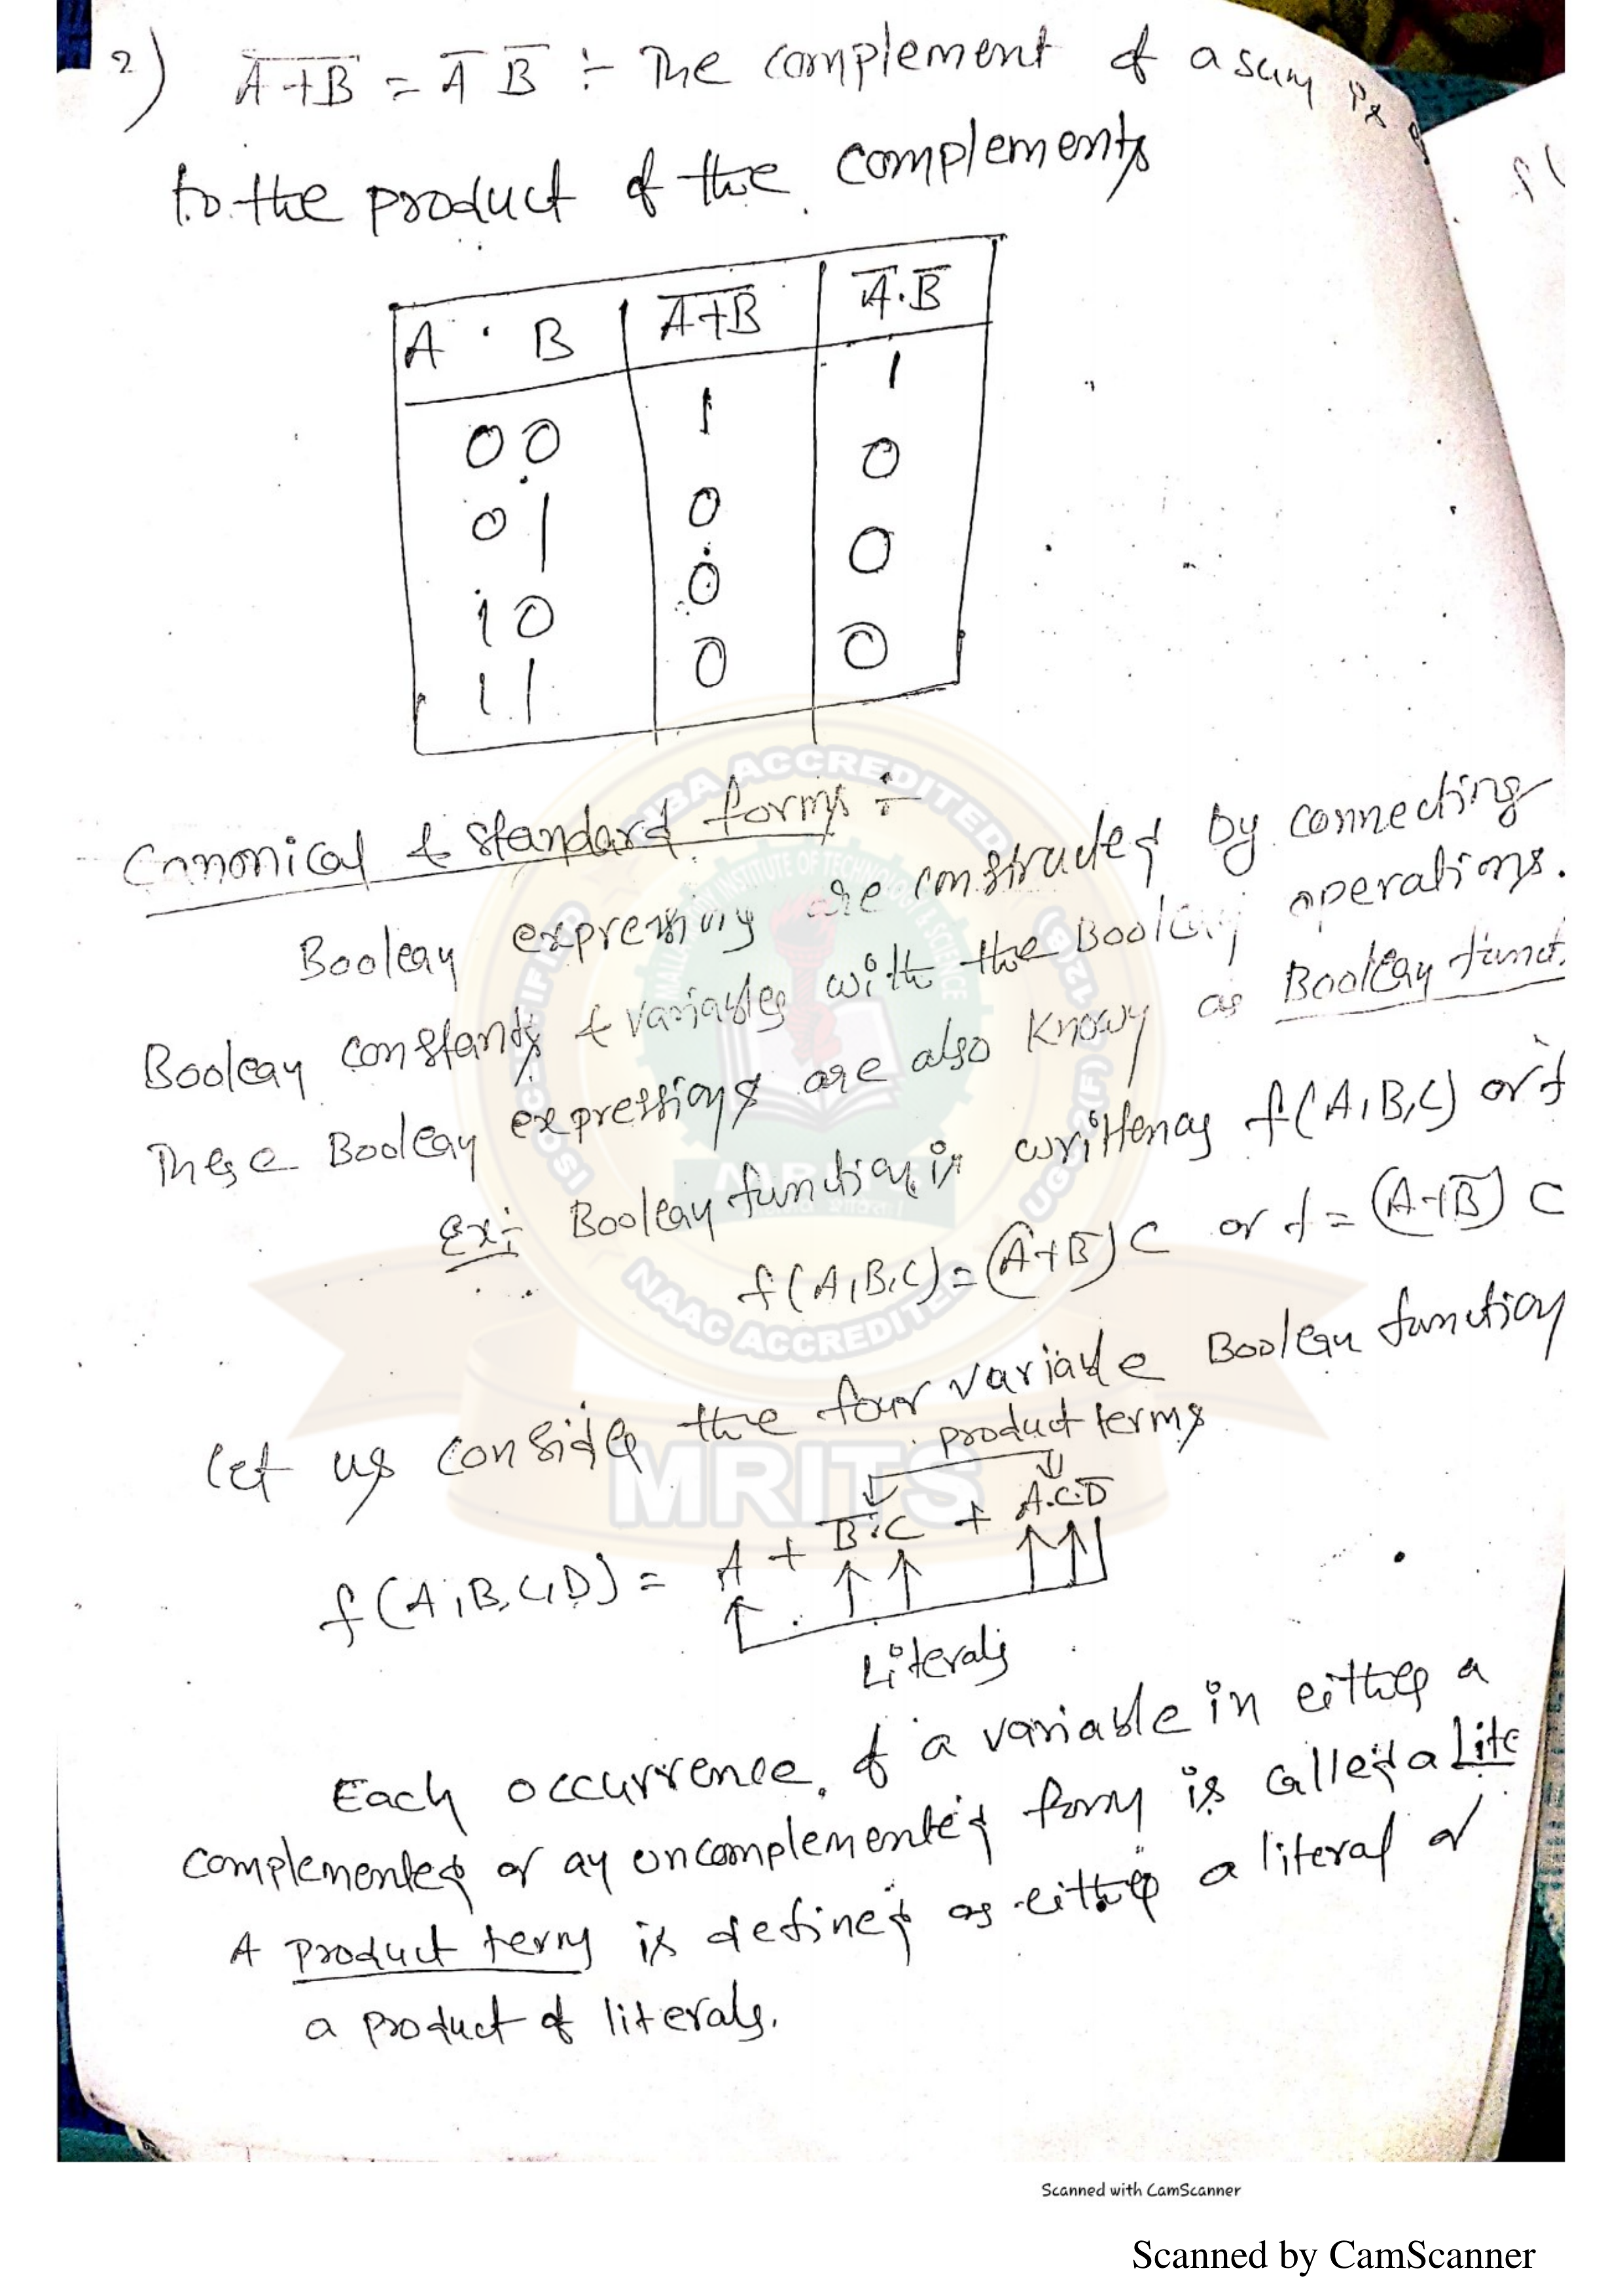 2) A̅+̅B̅ = A̅ B̅ :- The complement of a sum is
to the product of the complements
A · B A̅+̅B̅ A̅.B̅
0 0 1 1
0 1 0 0
1 0 0 0
1 1 0 0
Canonical & Standard forms :-
Boolean expressions are constructed by connecting
Boolean constants & variables with the Boolean operations.
These Boolean expressions are also known as Boolean funct.
Ex:- Boolean function is written as f(A,B,C) or f
f(A,B,C) = (A+B̅)C or f = (A+B̅) C
Let us consider the four variable Boolean function
product terms
f(A,B,C,D) = A + B̅.C + A.C.D̅
Literals
Each occurrence of a variable in either a
complemented or an uncomplemented form is called a Lite
A product term is defined as either a literal or
a product of literals.
MALLA INSTITUTE OF TECHNOLOGY & SCIENCE
NBA ACCREDITED
NAAC ACCREDITED
MRITS
Scanned with CamScanner
Scanned by CamScanner